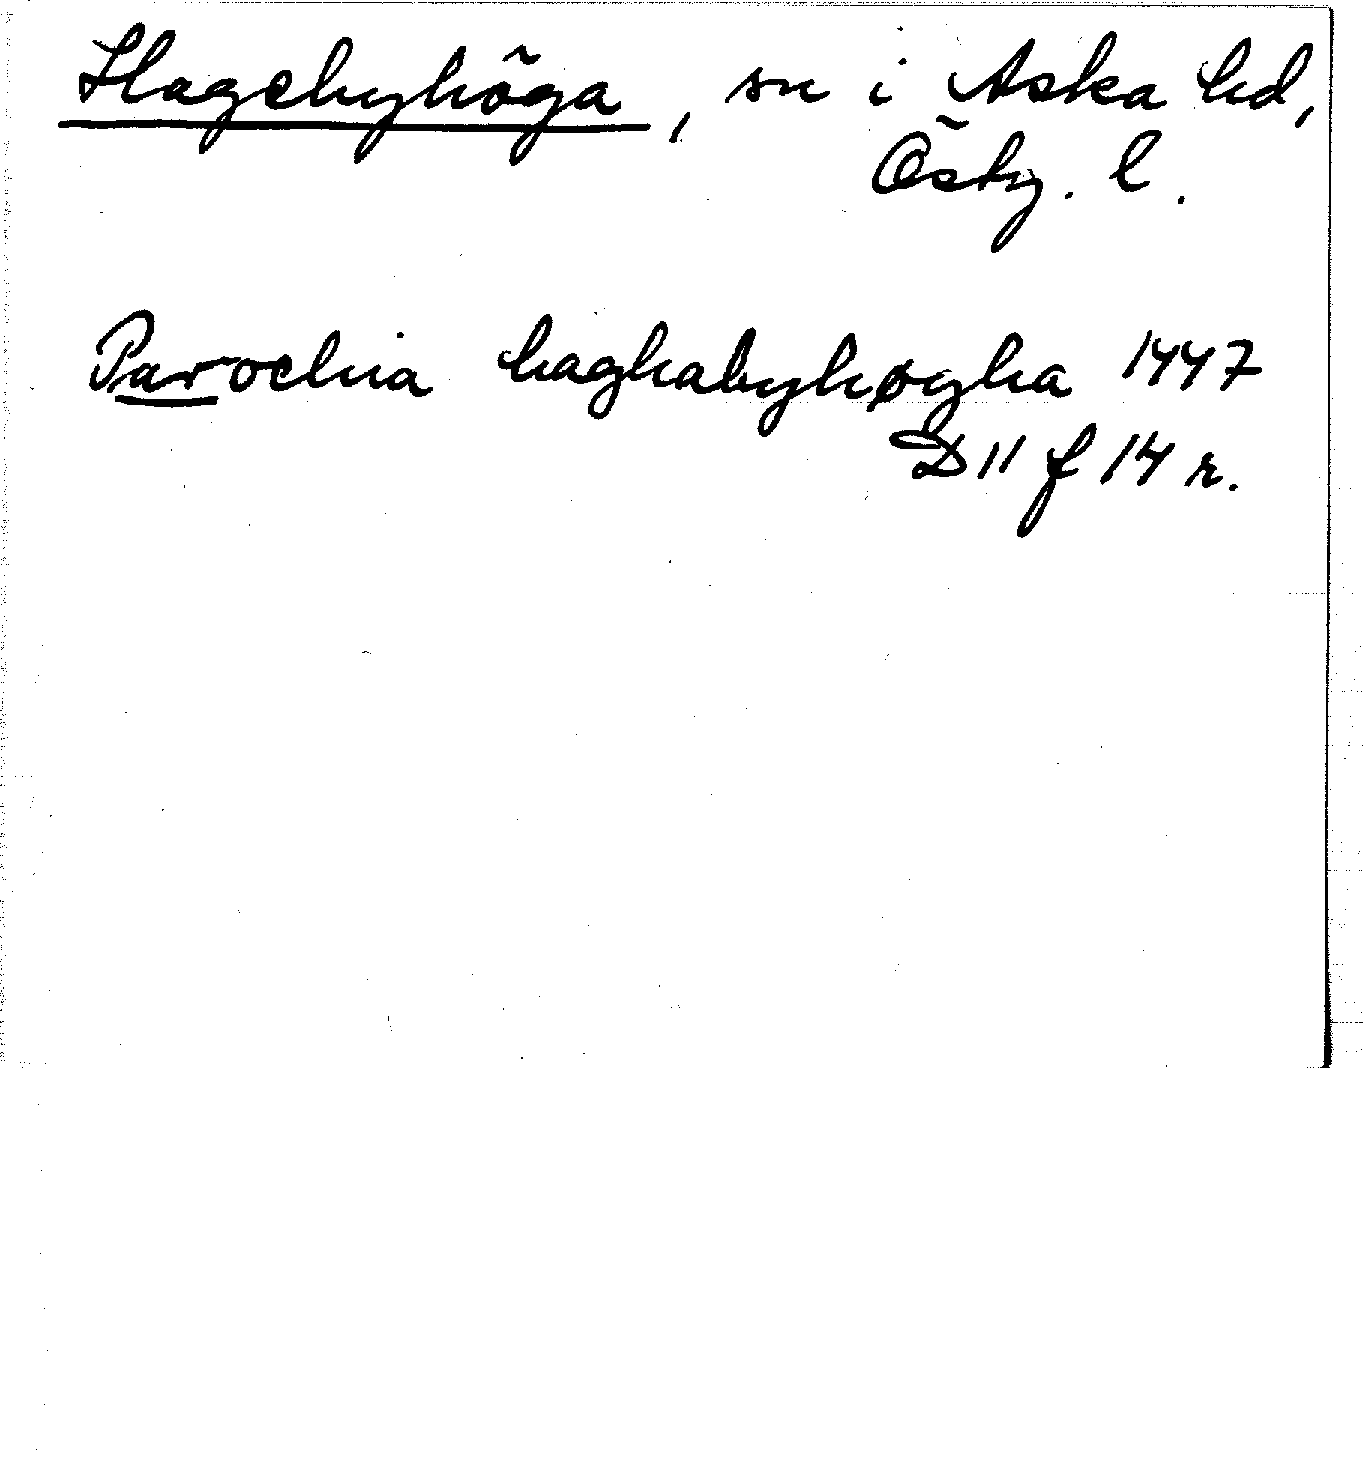 Hagebyhöga, sn i Aska hd,
Östg. l.
Parochia haghabyhøgha 1447
D 11 f 14 r.